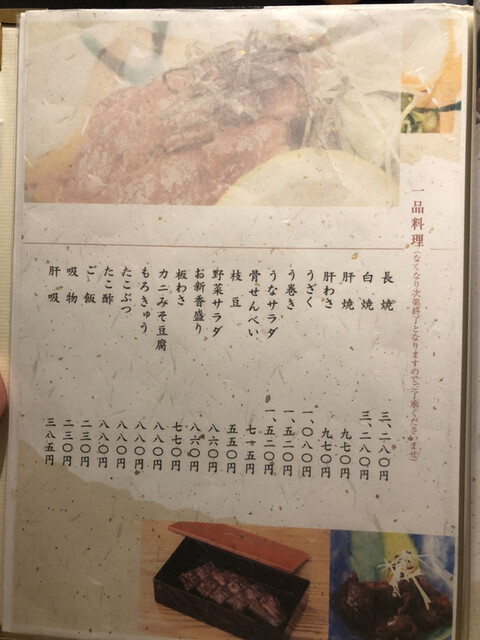 一品料理(なくなり次第終了となりますのでご了承くださいませ)
長焼 三、二八〇円
白焼 三、二八〇円
肝焼 九七〇円
肝わさ 九七〇円
うざく 一、〇八〇円
う巻き 一、五二〇円
うなサラダ 一、五二〇円
骨せんべい 七一五円
枝豆 五五〇円
野菜サラダ 八六〇円
お新香盛り 八六〇円
板わさ 七七〇円
カニみそ豆腐 八八〇円
もろきゅう 八八〇円
たこぶつ 八八〇円
たこ酢 八八〇円
ご飯 二三〇円
吸物 二三〇円
肝吸 三八五円